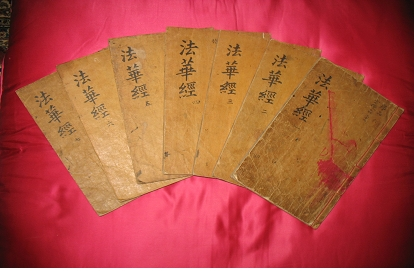 法華經
法華經 二
法華經 三
法華經
法華經 五
法華經 六
法華經